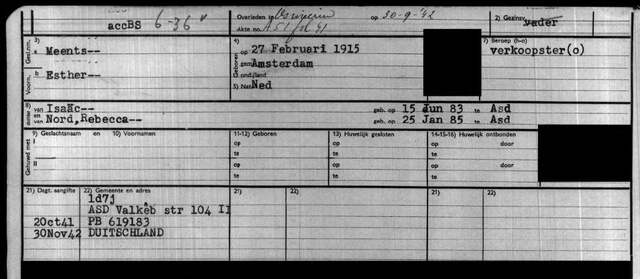 accBS 6-36 Overleden op 30-9-'42 2) Gezinsv. vader
Akte no.
3) 4) 7) Beroep (h-o)
Gesl.nm. a Meents-- Geboren op 27 Februari 1915 verkoopster(o)
gem Amsterdam
Voorn. b Esther-- ond.land
5) Nat Ned
8) van Isaäc-- geb. op 15 Jun 83 te Asd
en van Nord, Rebecca-- geb. op 25 Jan 85 te Asd
9) Geslachtsnaam en 10) Voornamen 11-12) Geboren 13) Huwelijk gesloten 14-15-16) Huwelijk ontbonden
Gehuwd met I op op op door
te te te
II op op op door
te te te
21) Dagt. aangifte 22) Gemeente en adres 21) 22) 21) 22)
1d7j
ASD Valkeb str 104 II
20ct41 PB 619183
30Nov42 DUITSCHLAND